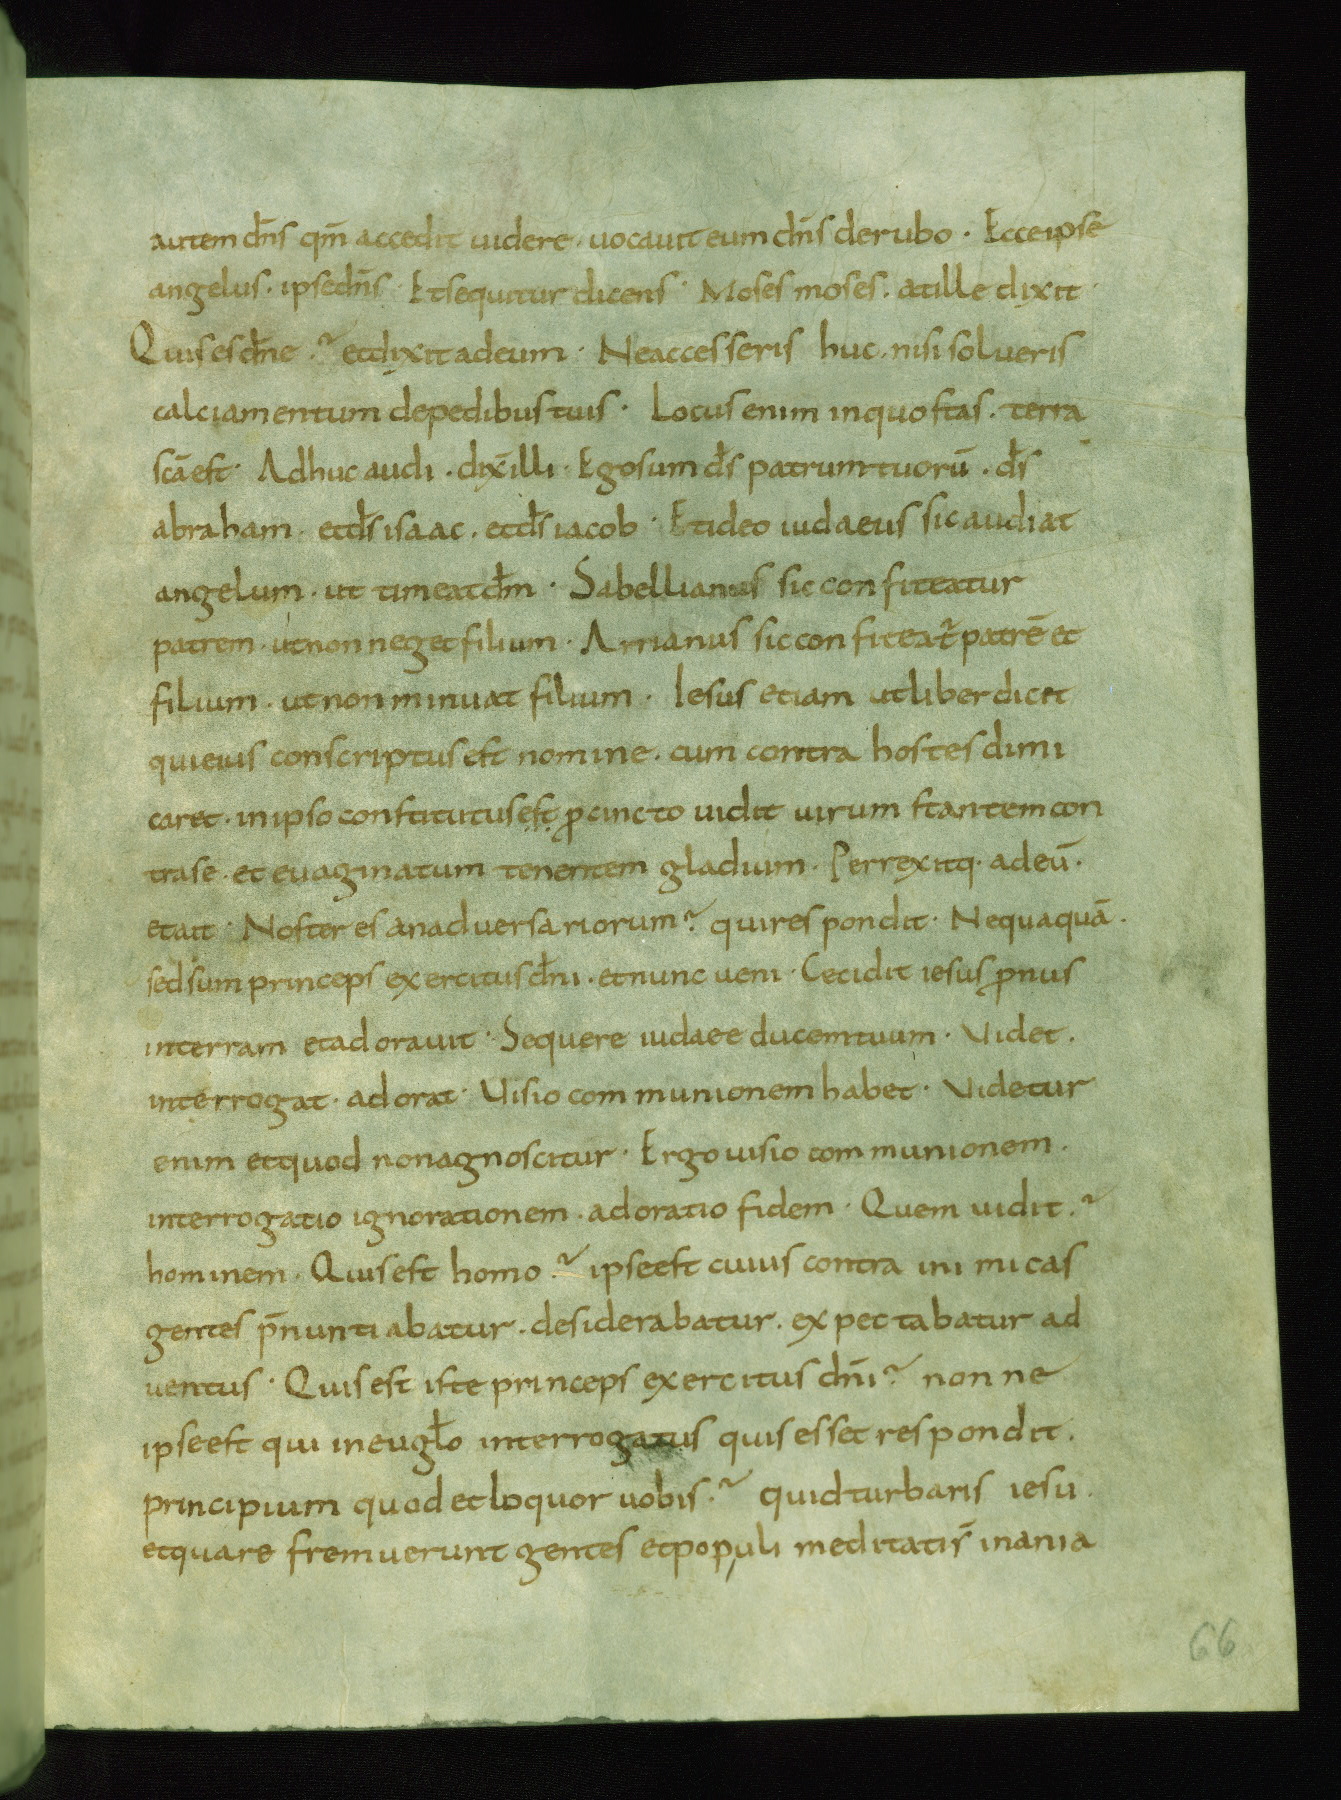 autem dn̄s qm̄ accedit uidere, uocauit eum dn̄s de rubo. Ecce ipse
angelus. ipse dn̄s. Et sequitur dicens. Moses moses. at ille dixit.
Quis es dn̄e? et dixit ad eum. Ne accesseris huc, nisi solueris
calciamentum de pedibus tuis. Locus enim in quo stas. terra
scā est. Adhuc audi. dix̄ illi. Ego sum ds̄ patrum tuorū. ds̄
abraham. et ds̄ isaac. et ds̄ iacob. Et ideo iudaeus sic audiat
angelum. ut timeat dm̄. Sabellianus sic confiteatur
patrem. ut non neget filium. Arrianus sic confiteat᷑ patrē et
filium. ut non minuat filium. Iesus etiam ut liber dicit
qui eius conscriptus est nomine. cum contra hostes dimi
caret. in ipso constitutus est ꝓcincto uidit uirum stantem con
tra se. et euaginatum tenentem gladium. Perrexitq. ad eū.
et ait. Noster es an aduersariorum? qui respondit. Nequaquā.
sed sum princeps exercitus dn̄i. et nunc ueni. Cecidit iesus ꝓnus
in terram et adorauit. Sequere iudaee ducem tuum. Videt.
interrogat. adorat. Visio communionem habet. Videtur
enim et quod non agnoscitur. Ergo uisio communionem.
interrogatio ignorationem. adoratio fidem. Quem uidit?
hominem. Quis est homo? ipse est cuius contra inimicas
gentes p̄nuntiabatur. desiderabatur. expectabatur ad
uentus. Quis est iste princeps exercitus dn̄i? nonne
ipse est qui in eugl̄o interrogatus quis esset respondit.
principium quod et loquor uobis? quid turbaris iesu.
et quare fremuerunt gentes et populi meditati s̄ inania
66